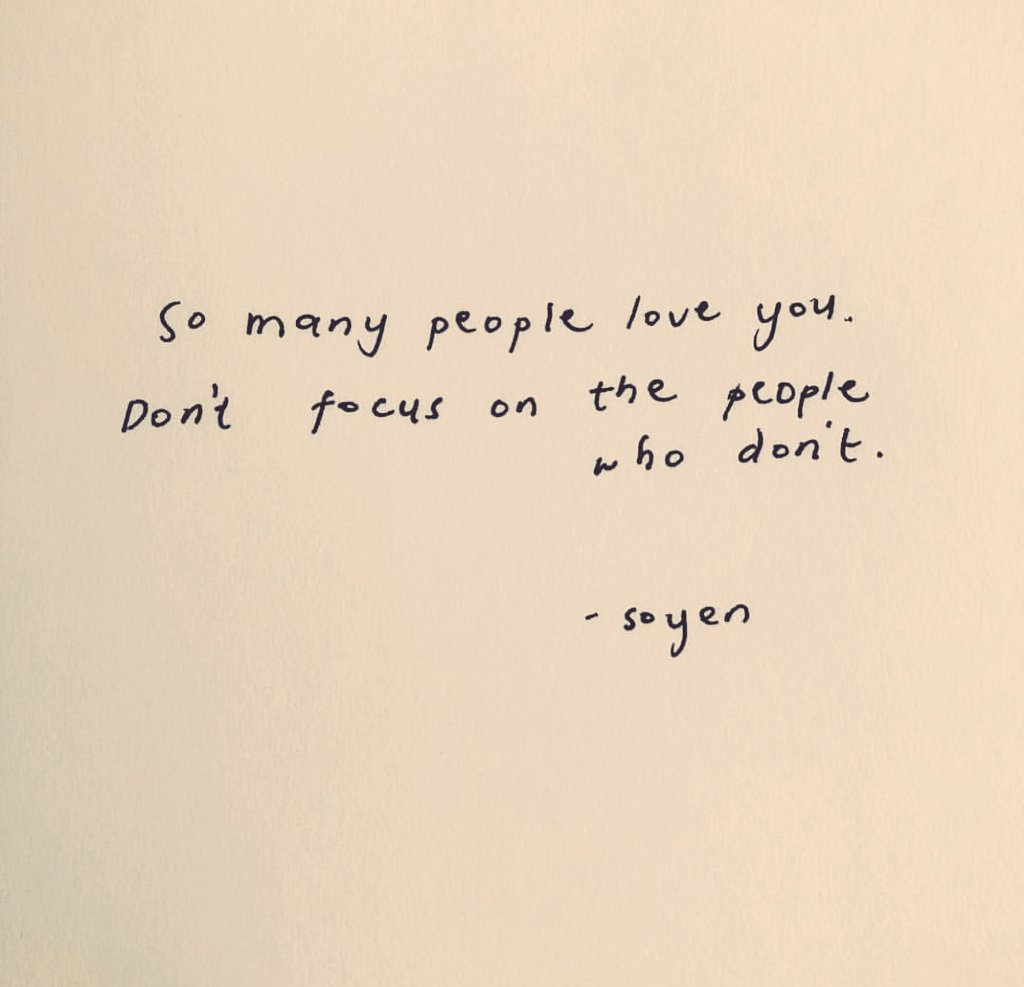 So many people love you.
Don't focus on the people
who don't.
- soyen